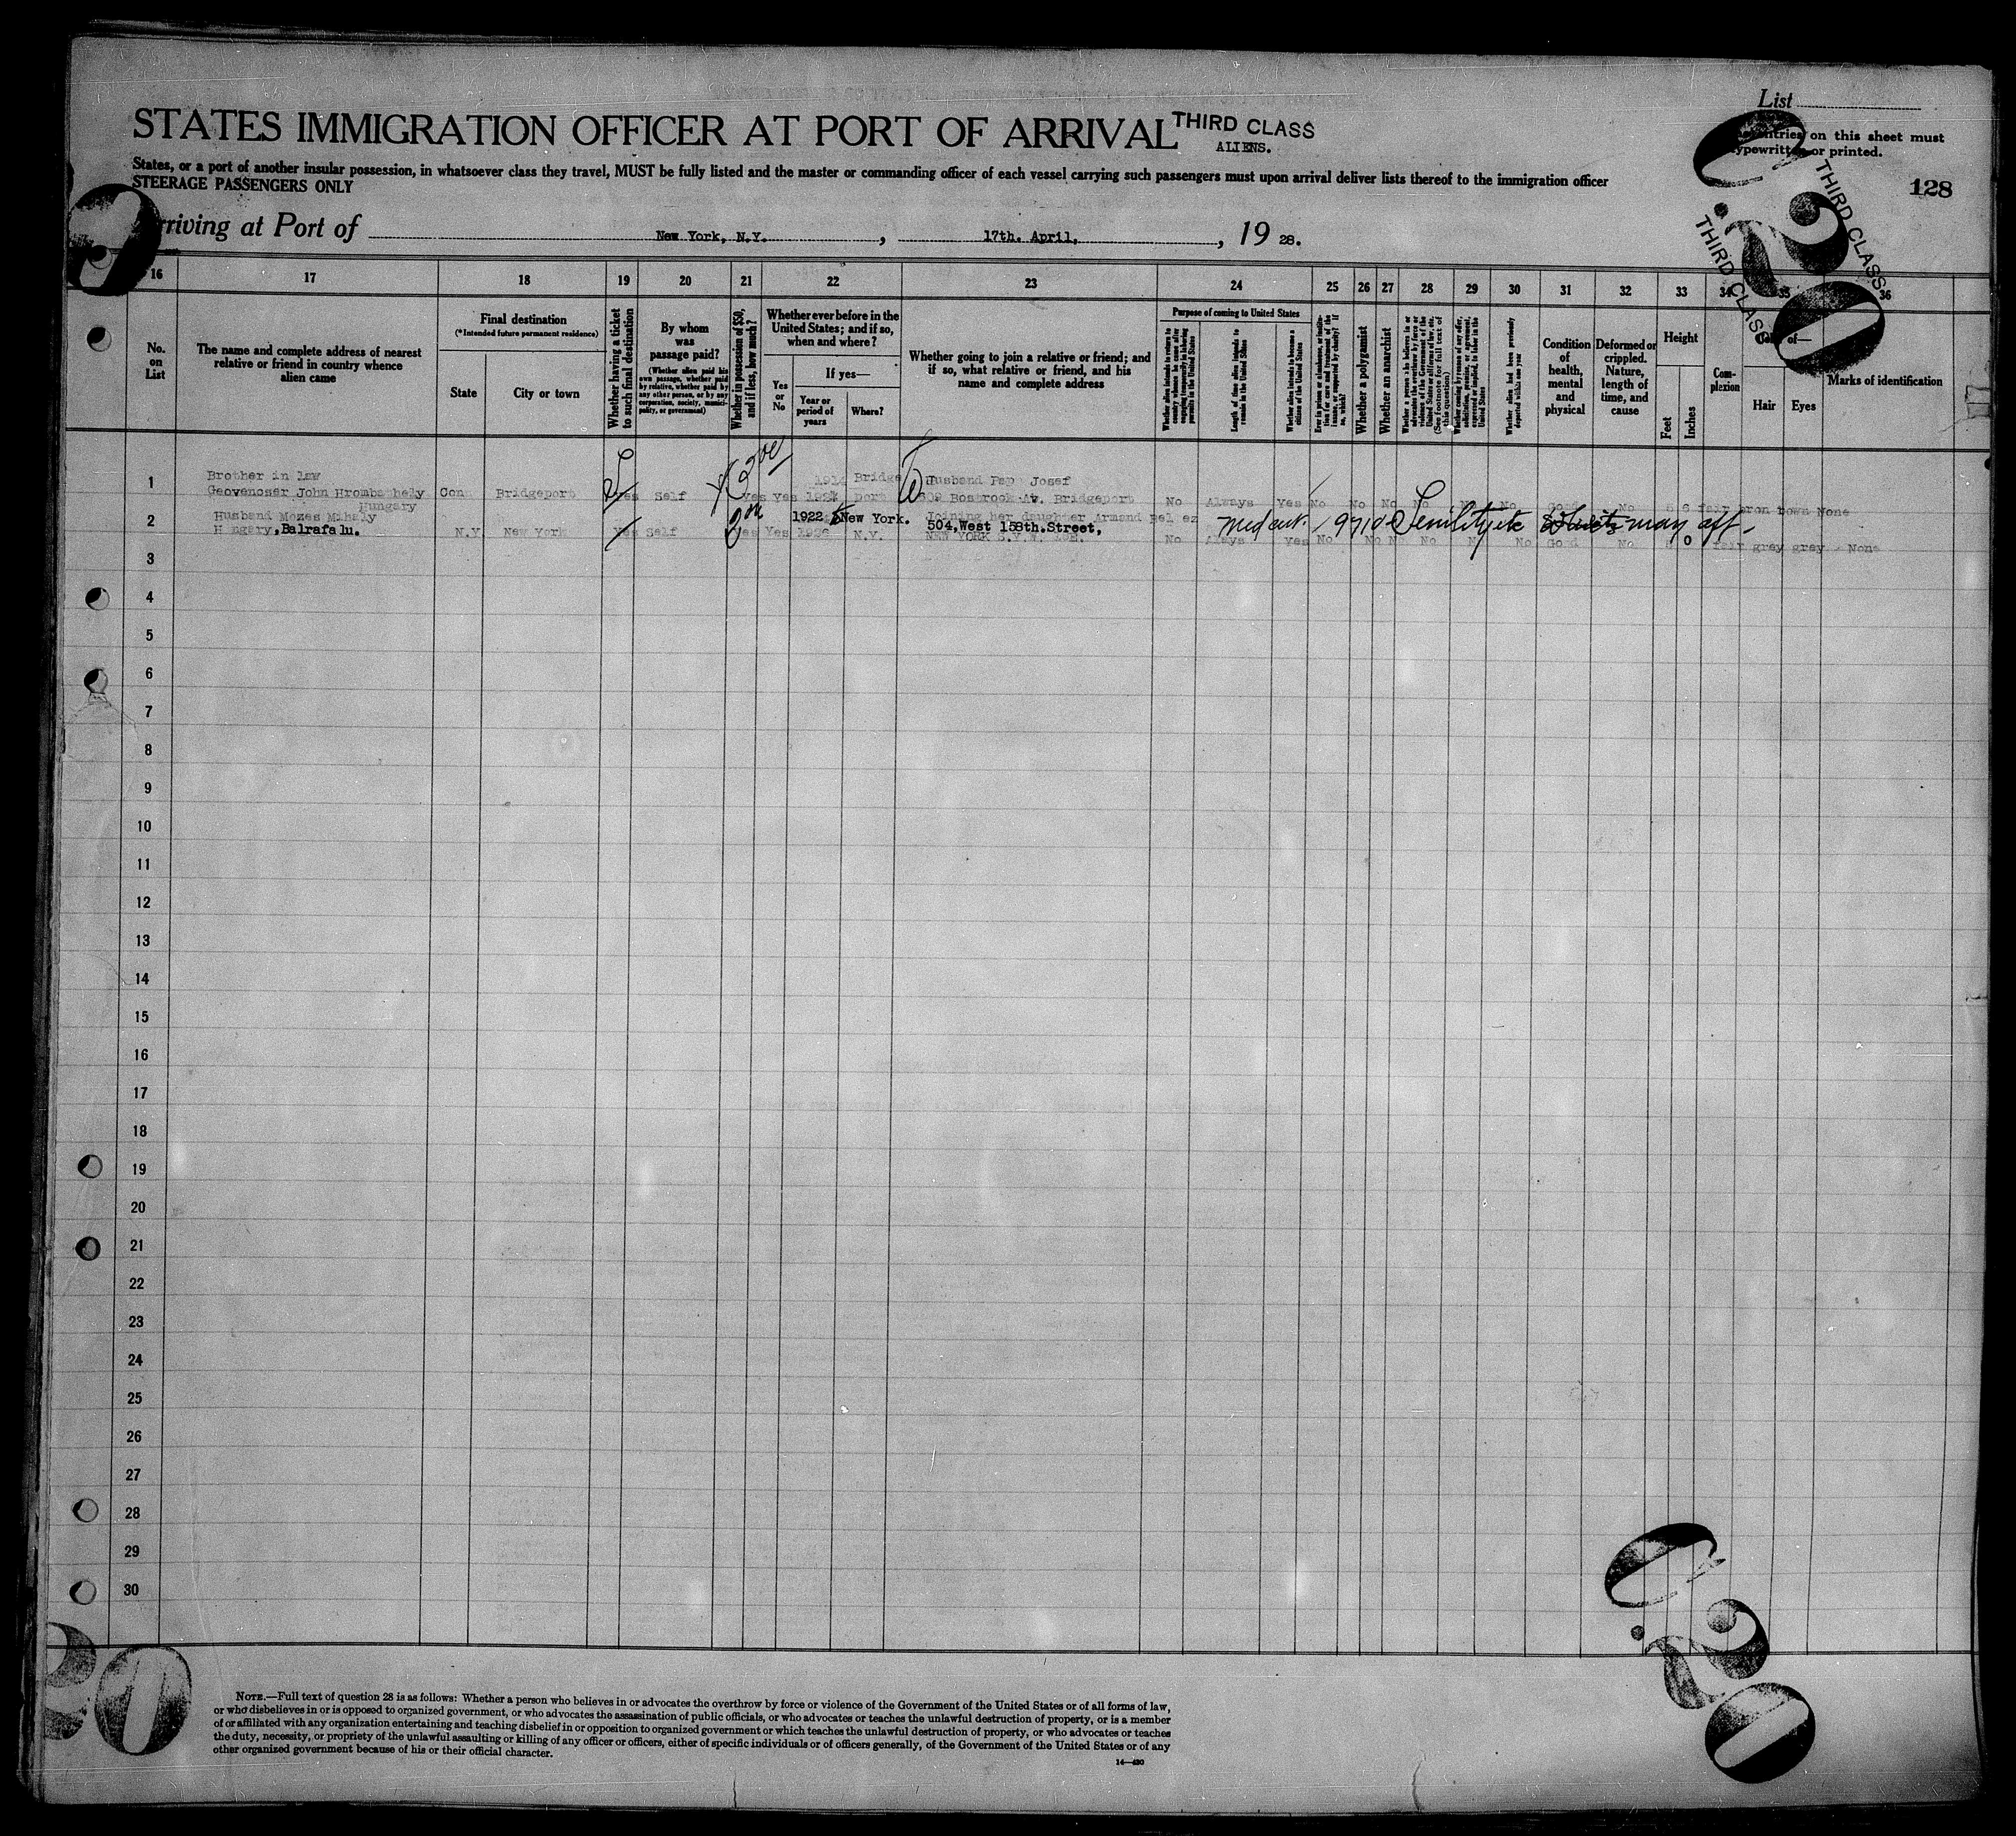 List
STATES IMMIGRATION OFFICER AT PORT OF ARRIVAL THIRD CLASS
ALIENS.
entries on this sheet must
typewritten or printed.
States, or a port of another insular possession, in whatsoever class they travel, MUST be fully listed and the master or commanding officer of each vessel carrying such passengers must upon arrival deliver lists thereof to the immigration officer
STEERAGE PASSENGERS ONLY
128
THIRD CLASS
THIRD CLASS
Arriving at Port of New York, N.Y. , 17th. April, , 19 28.
16 17 18 19 20 21 22 23 24 25 26 27 28 29 30 31 32 33 34 35 36
No. on List
The name and complete address of nearest relative or friend in country whence alien came
Final destination
(*Intended future permanent residence)
State
City or town
Whether having a ticket to such final destination
By whom was passage paid?
(Whether alien paid his own passage, whether paid by relative, whether paid by any other person, or by any corporation, society, municipality, or government)
Whether in possession of $50, and if less, how much?
Whether ever before in the United States; and if so, when and where?
Yes or No
If yes—
Year or period of years
Where?
Whether going to join a relative or friend; and if so, what relative or friend, and his name and complete address
Purpose of coming to United States
Whether alien intends to return to country whence he came after engaging temporarily in laboring pursuits in the United States
Length of time alien intends to remain in the United States
Whether alien intends to become a citizen of the United States
Whether a polygamist
Whether an anarchist
(See footnote for full text of this question)
Whether alien had been previously deported within one year
Condition of health, mental and physical
Deformed or crippled. Nature, length of time, and cause
Height
Feet
Inches
Complexion
Color of—
Hair
Eyes
Marks of identification
1 Brother in law
Geovenoser John Hrombathely Con Bridgeport Yes Self Yes Yes Bridge port Husband Pap Josef
Bosbrook Av. Bridgeport No Always Yes No No No No No No
Hungary
2 Husband Mozes Mihaly 1922 New York. Joining her daughter Armand
Hungary, Balrafalu. N.Y. New York Yes Self Yes Yes N.Y. 504, West 158th. Street,
Senility etc may aff
No Always Yes No No No No No No No Good No 0 fair grey grey None
3
4
5
6
7
8
9
10
11
12
13
14
15
16
17
18
19
20
21
22
23
24
25
26
27
28
29
30
NOTE.—Full text of question 28 is as follows: Whether a person who believes in or advocates the overthrow by force or violence of the Government of the United States or of all forms of law,
or who disbelieves in or is opposed to organized government, or who advocates the assassination of public officials, or who advocates or teaches the unlawful destruction of property, or is a member
of or affiliated with any organization entertaining and teaching disbelief in or opposition to organized government or which teaches the unlawful destruction of property, or who advocates or teaches
the duty, necessity, or propriety of the unlawful assaulting or killing of any officer or officers, either of specific individuals or of officers generally, of the Government of the United States or of any
other organized government because of his or their official character.
14—430